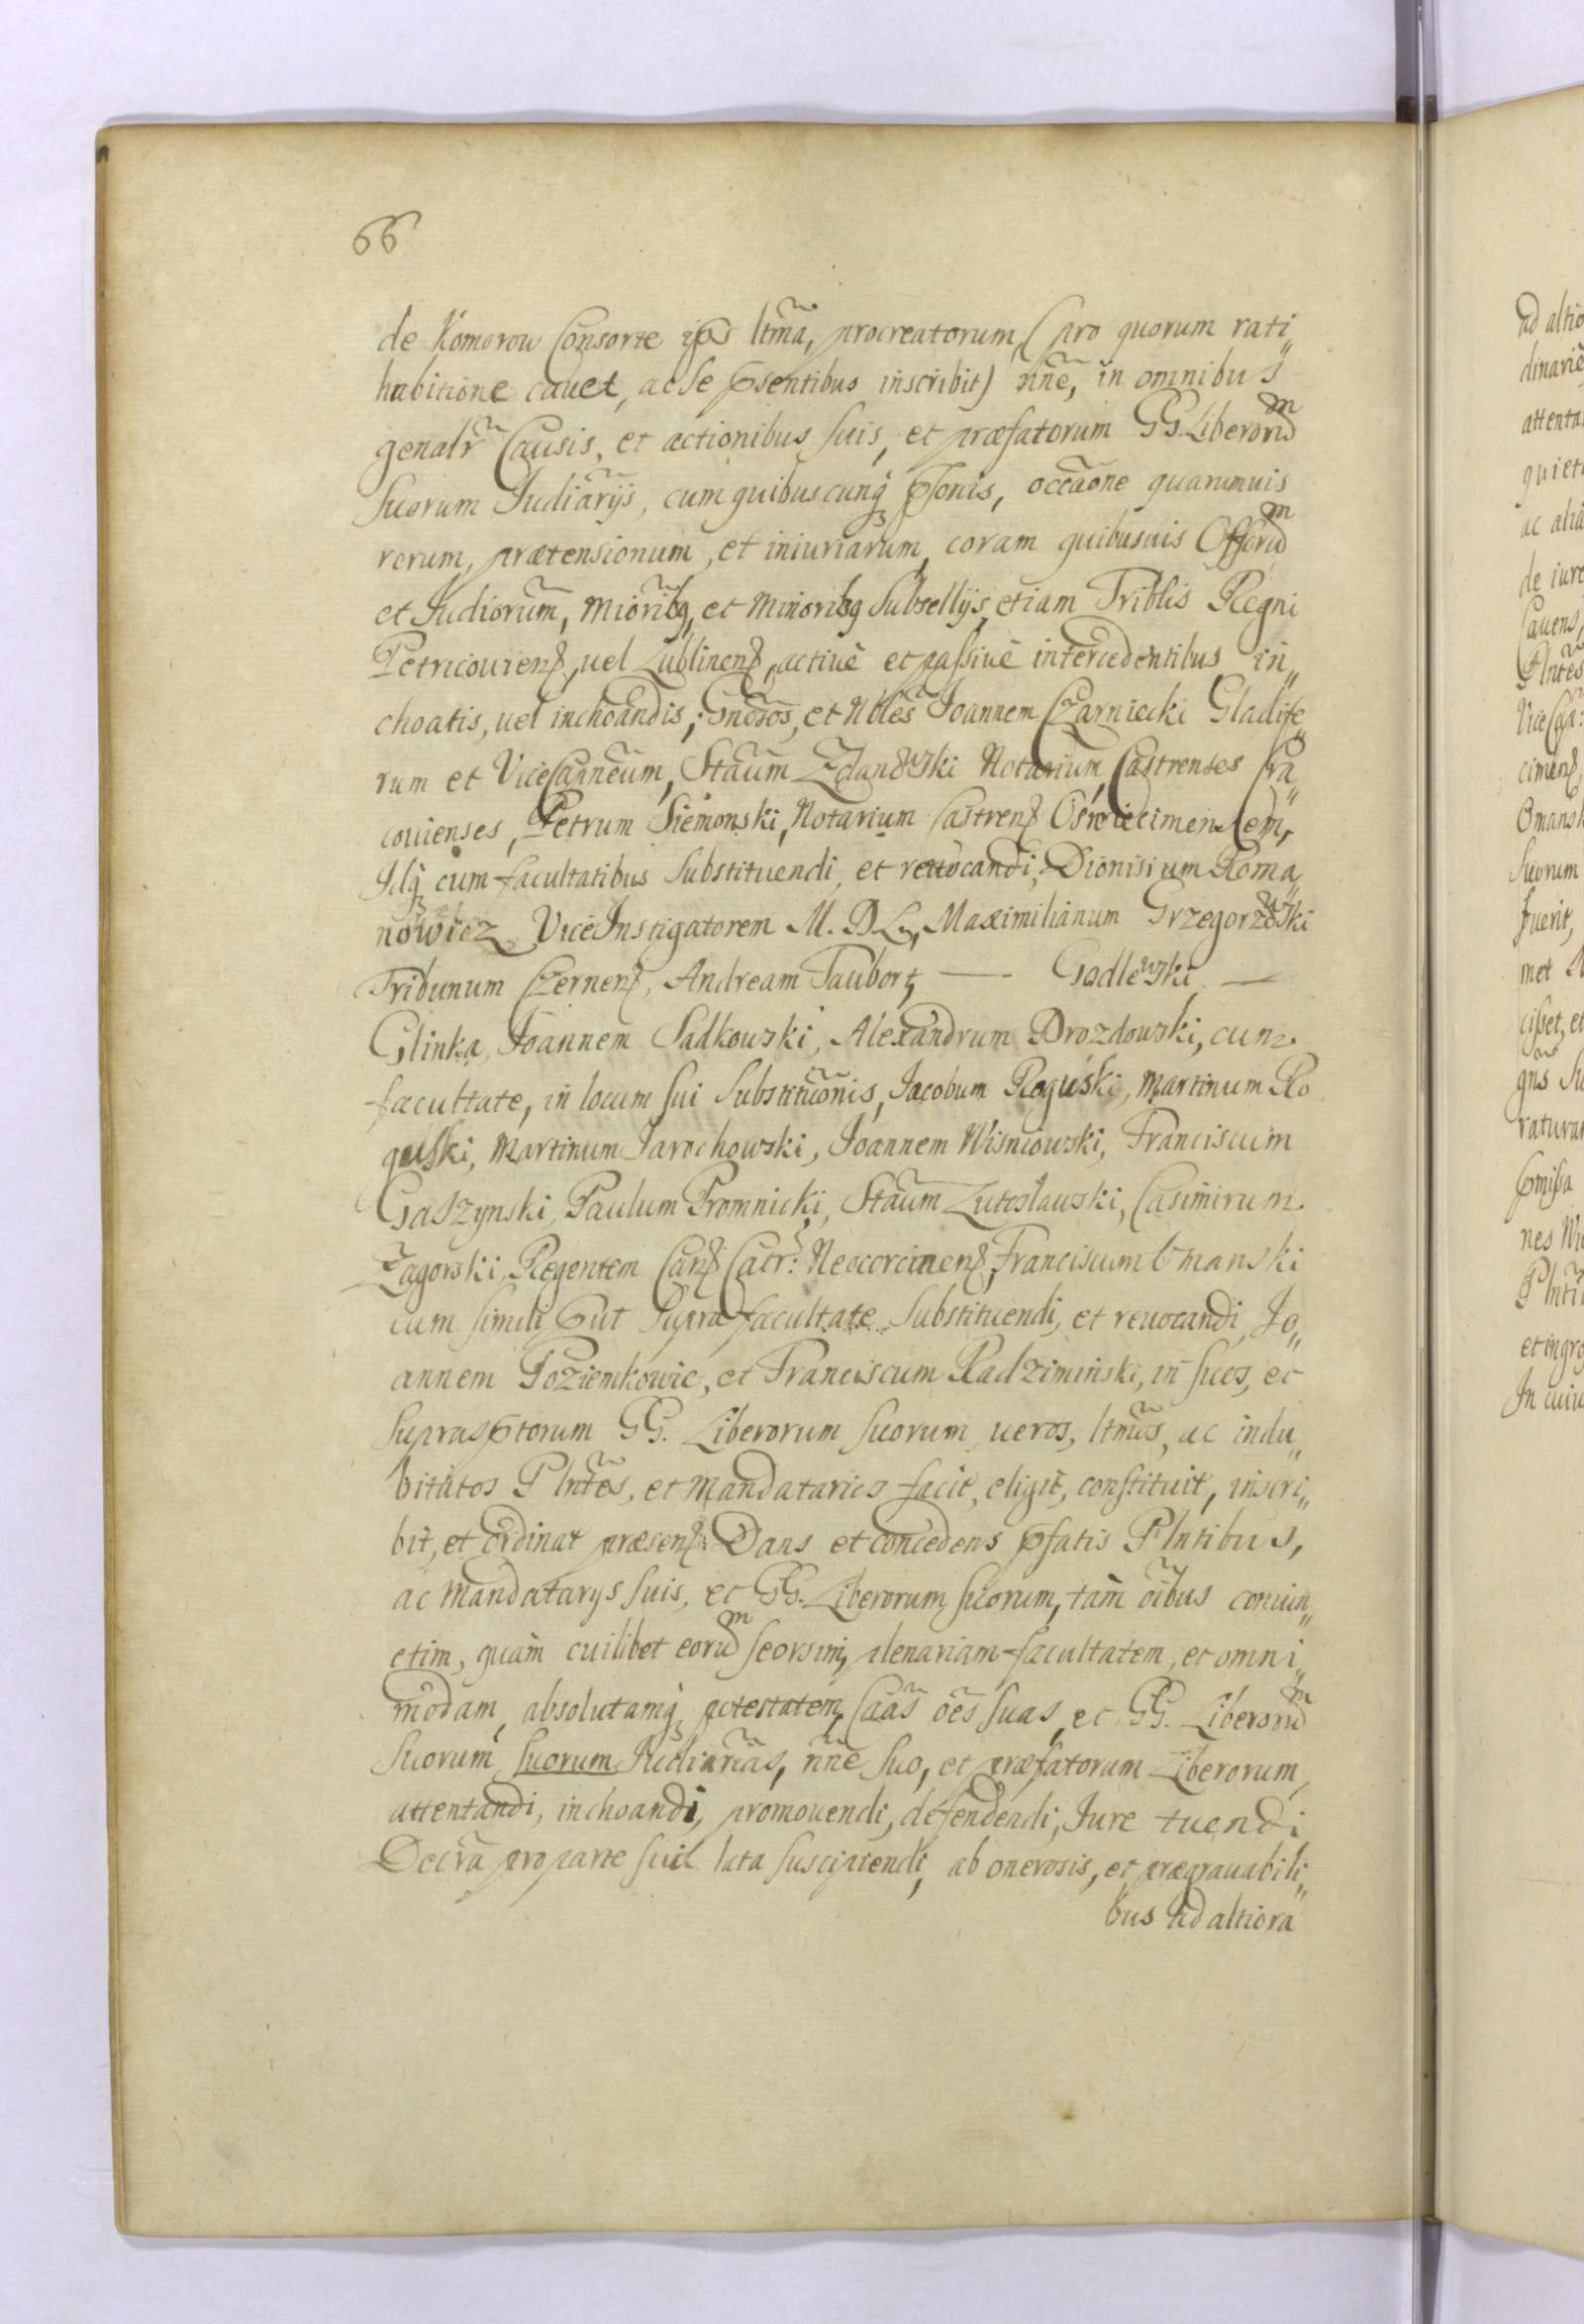 66
de Komorow Consorte ips ltma, procreatorum, (pro quorum rati„
habitione cavet, ac se psentibus inscribit) nne, in omnibus
genalr Causis, et actionibus suis, et præfatorum GG. Liberorum
suorum Judiarijs, cum quibuscunq psonis, occaone quarumuis
rerum, prætensionum, et iniuriarum, coram quibusuis Offiorum
et Judiorum, Mioribq, et Minoribq Subsellijs, etiam Triblis Regni
Petricouiens, uel Lublinens, actiuè et passiuè intercedentibus, in„
choatis, uel inchoandis; Gnosos, et Nbles Joannem Czarniecki Gladife„
rum et ViceCapneum, Staum Zdanowski Notarium Castrenses Cra„
couienses, Petrum Siemonski, Notarium Castrens Oswiecimensem,
Idq cum facultatibus Substituendi, et reuocandi, Dionisium Roma„
nowicz ViceInstigatorem M. D. L., Maximilianum Grzegorzewski
Tribunum Czernens, Andream Taubort, — Godlewski, —
Glinka, Joannem Sadkowski, Alexandrum Drozdowski, cum
facultate, in locum sui Substituonis, Jacobum Roguski, Martinum Ro
guski, Martinum Jarochowski, Joannem Wisniowski, Franciscum
Gaszynski, Paulum Promnicki, Staum Lutoslawski, Casimirum
Zagorski, Regentem Cans Catr: Neocorcinens, Franciscum Omanski
cum simili put supra facultate Substituendi, et reuocandi, Jo„
annem Poziemkowic, et Franciscum Radziminski, in suos, et
suprasptorum GG. Liberorum suorum, ueros, ltmos, ac indu„
bitatos Plntes, et Mandatarios facit, eligit, constituit, inscri„
bit, et ordinat præsens. Dans et concedens pfatis Plntibus,
ac Mandatarys suis, et GG. Liberorum suorum, tam oibus coniun„
ctim, quam cuilibet eorum seorsim, plenariam facultatem, et omni„
modam, absolutamq potestatem, Caas oes suas, et GG. Liberorum
suorum suorum Judiarias, nne suo, et præfatorum Liberorum,
attentandi, inchoandi, promouendi, defendendi, Jure tuendi
Decra pro parte sui lata suscipiendi, ab onerosis, et prægrauabili„
bus ad altiora